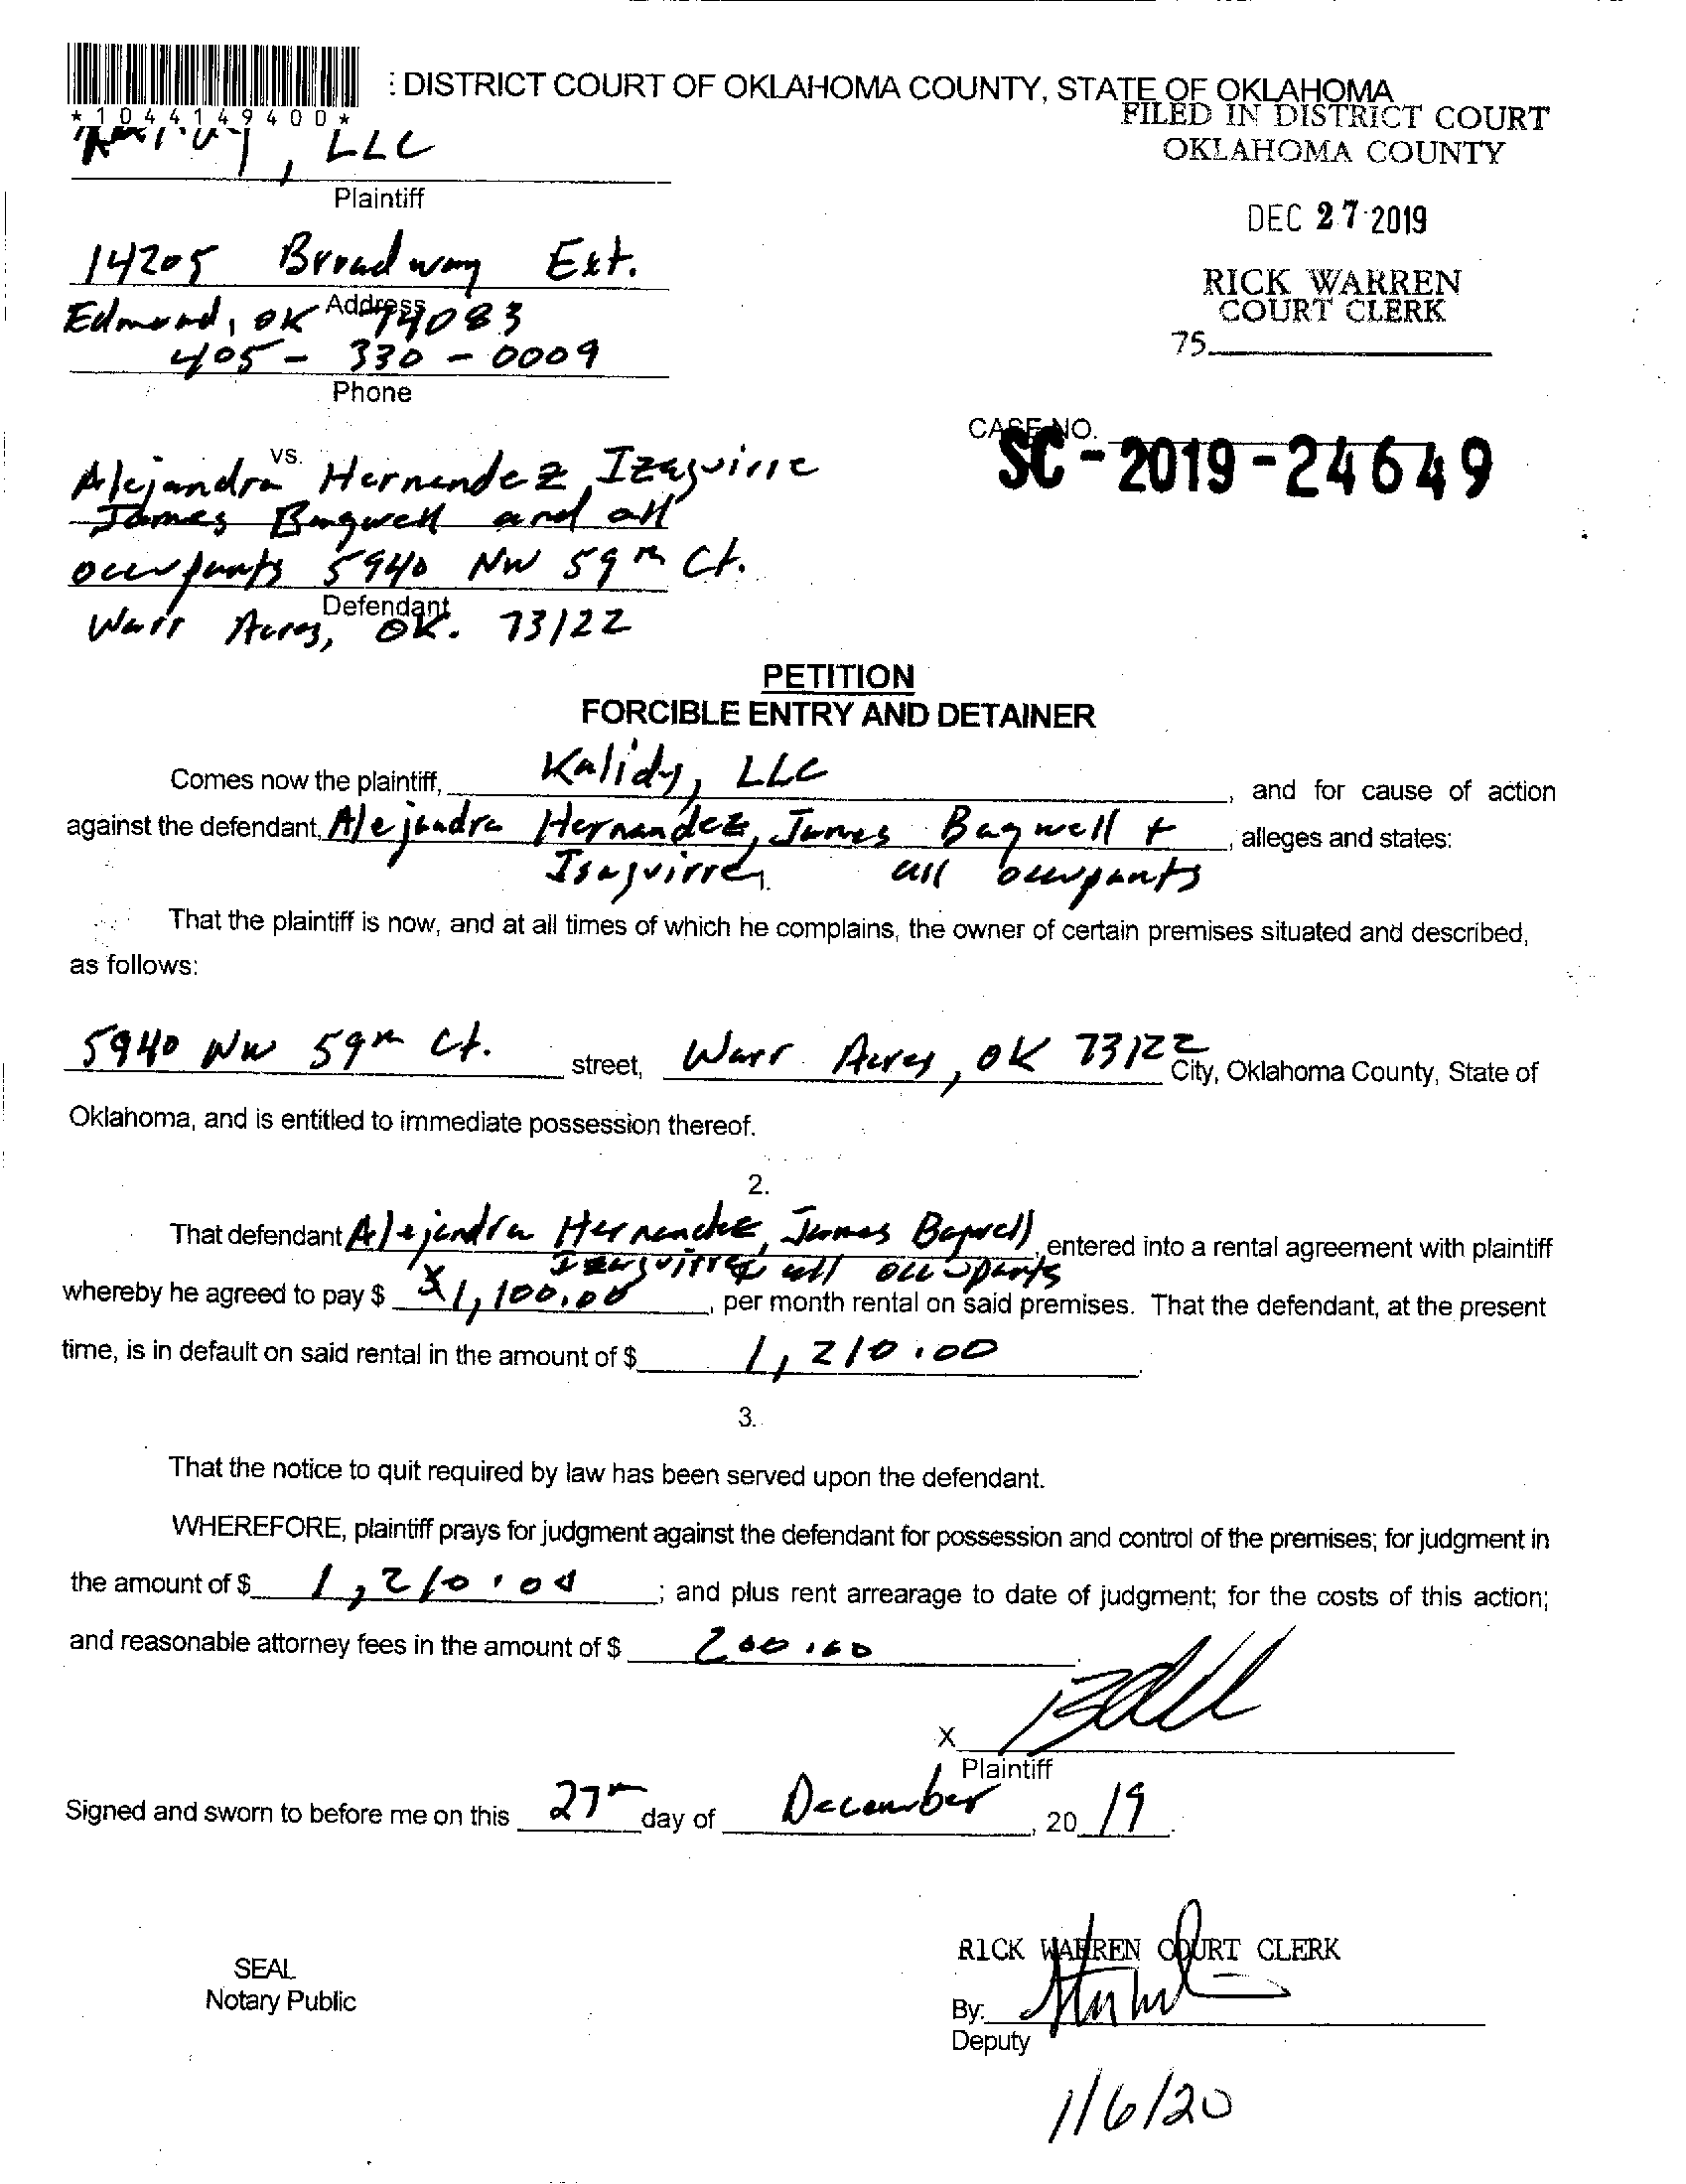 : DISTRICT COURT OF OKLAHOMA COUNTY, STATE OF OKLAHOMA
*1044149400*
FILED IN DISTRICT COURT
OKLAHOMA COUNTY
DEC 27 2019
RICK WARREN
COURT CLERK
75
, LLC
Plaintiff
14205 Broadway Ext.
Address
Edmond, OK 74083
405-330-0009
Phone
CASE NO.
SC-2019-24649
vs.
Alejandra Hernandez Izaguirre
James Bagwell and all
occupants 5940 NW 59th Ct.
Defendant
Warr Acres, OK. 73122
PETITION
FORCIBLE ENTRY AND DETAINER
Comes now the plaintiff, Kalidy, LLC, and for cause of action
against the defendant, Alejandra Hernandez, James Bagwell +, alleges and states:
all occupants
That the plaintiff is now, and at all times of which he complains, the owner of certain premises situated and described,
as follows:
5940 NW 59th Ct. street, Warr Acres, OK 73122 City, Oklahoma County, State of
Oklahoma, and is entitled to immediate possession thereof.
2.
That defendant Alejandra Hernandez, James Bagwell, entered into a rental agreement with plaintiff
all occupants
whereby he agreed to pay $ 1,100.00, per month rental on said premises. That the defendant, at the present
time, is in default on said rental in the amount of $ 1,210.00.
3.
That the notice to quit required by law has been served upon the defendant.
WHEREFORE, plaintiff prays for judgment against the defendant for possession and control of the premises; for judgment in
the amount of $ 1,210.00; and plus rent arrearage to date of judgment; for the costs of this action;
and reasonable attorney fees in the amount of $ 200.00.
X
Plaintiff
Signed and sworn to before me on this 27th day of December, 20 19.
RICK WARREN COURT CLERK
SEAL
Notary Public
By:
Deputy
1/6/20